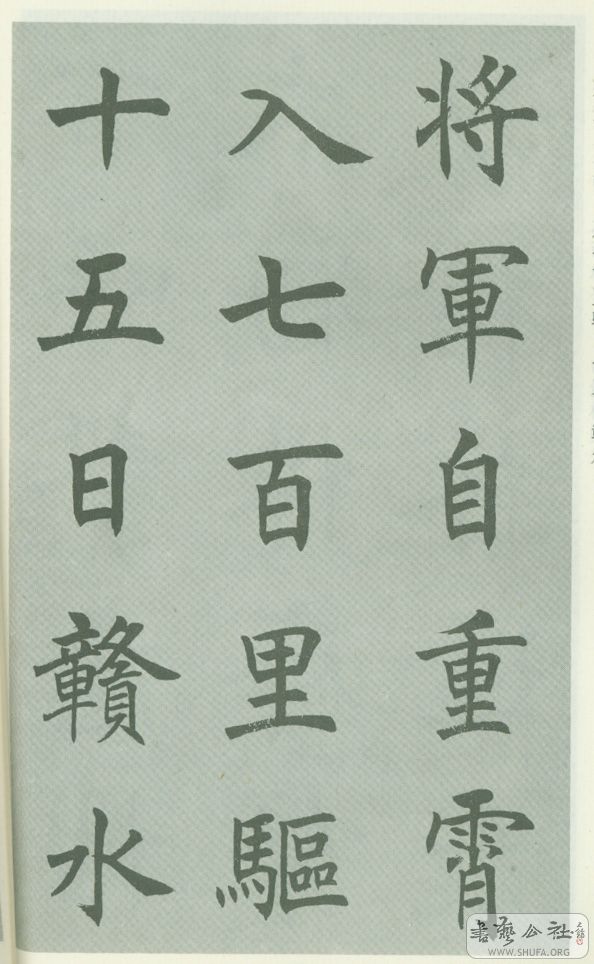 将軍自重霄
入七百里驅
十五日贛水
書藝公社
WWW.SHUFA.ORG